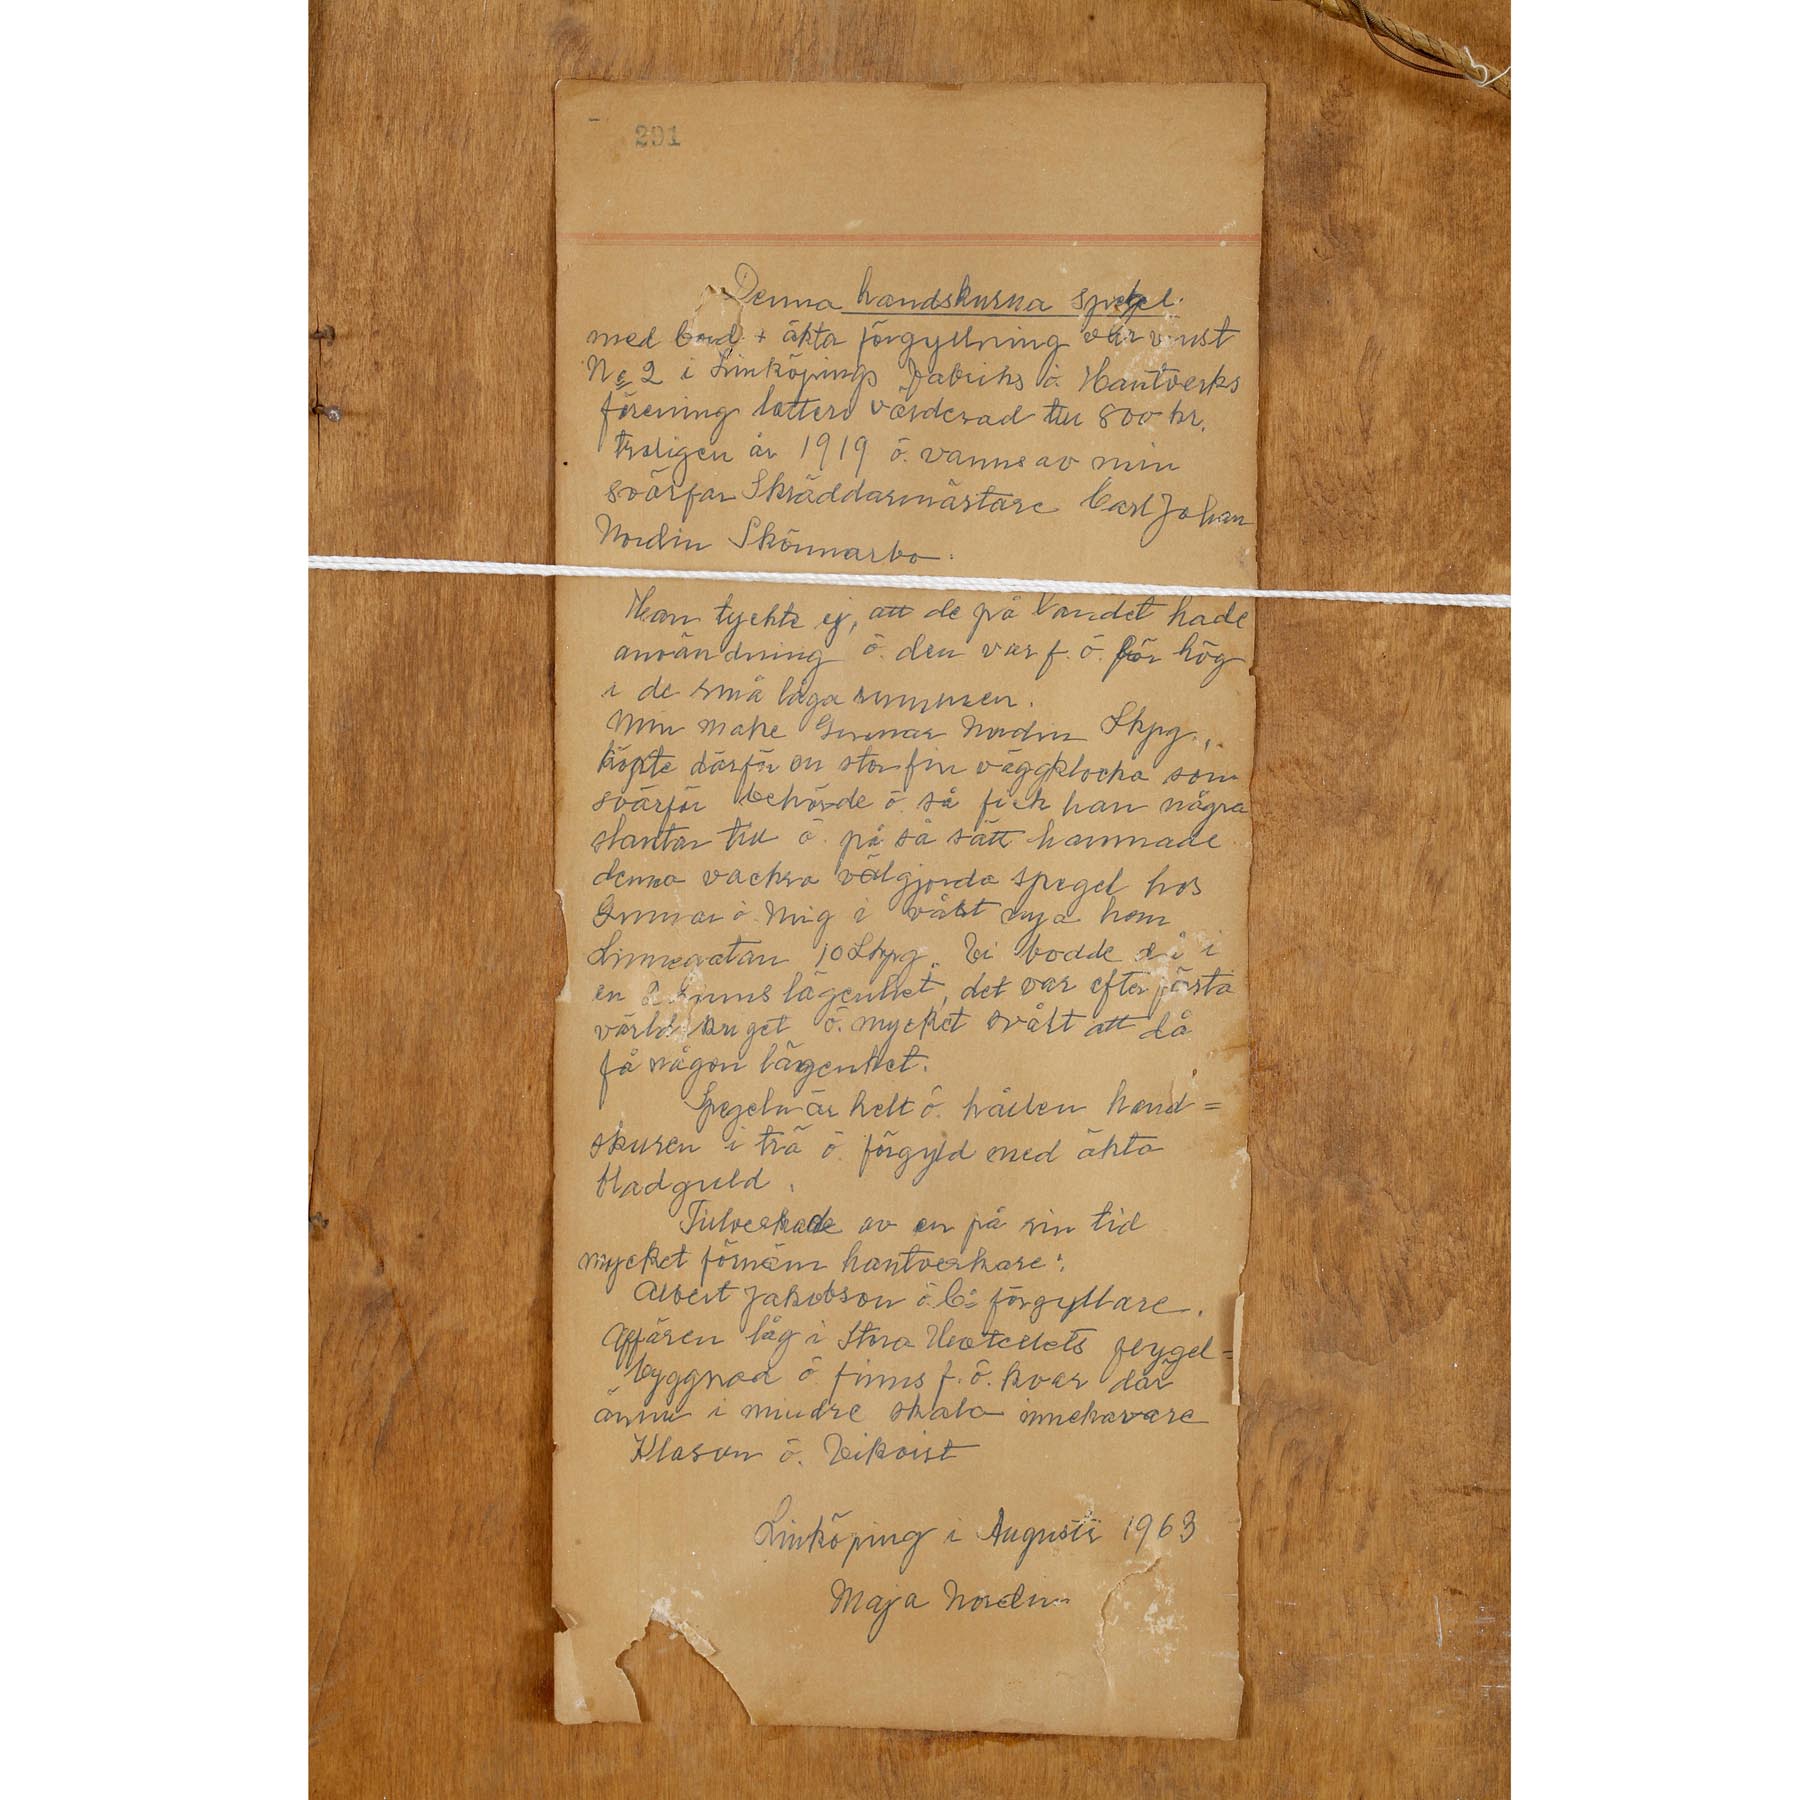 291
Denna handskurna spegel
med bord + äkta förgyllning var vinst
No 2 i Linköpings Fabriks ö. Hantverks
förening lotteri värderad till 800 kr.
troligen år 1919 ö. vanns av min
svärfar Skräddarmästare Carl Johan
Nordin Skönnarbo.
Han tyckte ej, att de på landet hade
användning ö. den var f. ö. för hög
i de små låga rummen.
Min make Gunnar Nordin Lkpg.,
köpte därför en stor fin väggklocka som
svärfar behövde ö. så fick han några
slantar till ö. på så sätt hamnade
denna vackra välgjorda spegel hos
Gunnar ö. Mig i vårt nya hem
Linnegatan 10 Lkpg. Vi bodde då i
en 2 rums lägenhet, det var efter första
världskriget ö. mycket svårt att då
få någon lägenhet.
Spegeln är helt ö. hållen hand=
skuren i trä ö. förgyld med äkta
bladguld.
Tillverkade av en på sin tid
mycket förnäm hantverkare:
Albert Jakobson ö. Co förgyllare.
Affären låg i Stora Hotellets flygel=
byggnad ö. finns f. ö. kvar där
ännu i mindre skala innehavare
Klason ö. Vikvist
Linköping i Augusti 1963
Maja Nordin